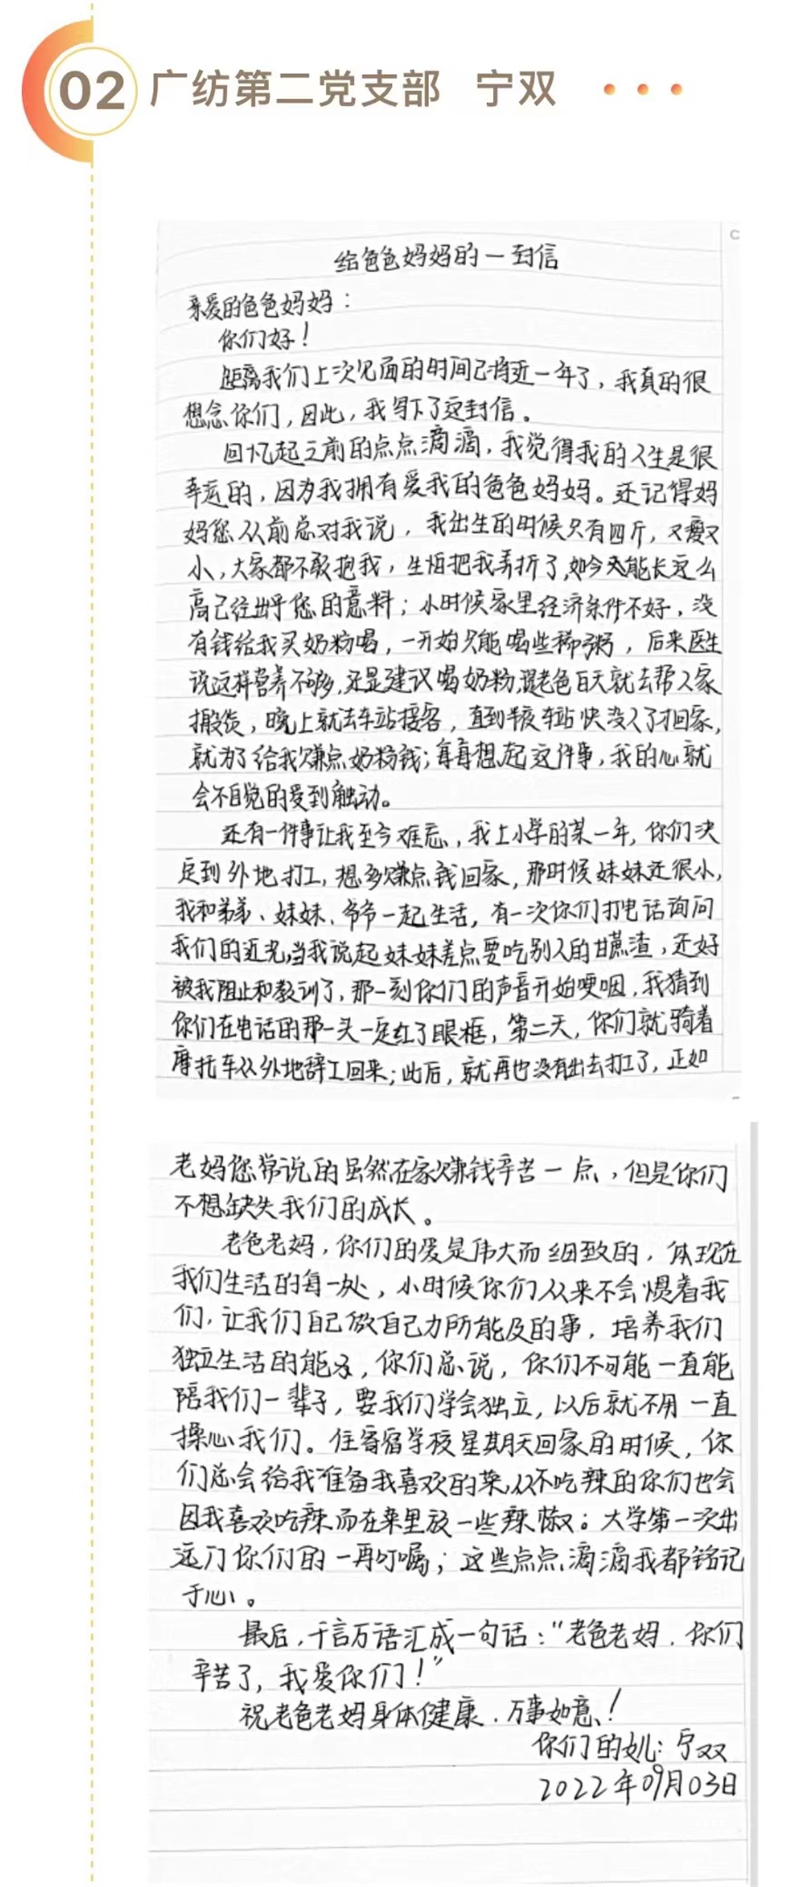 02 广纺第二党支部 宁双
给爸爸妈妈的一封信
亲爱的爸爸妈妈：
你们好！
距离我们上次见面的时间已将近一年了，我真的很
想念你们，因此，我写下了这封信。
回忆起之前的点点滴滴，我觉得我的人生是很
幸运的，因为我拥有爱我的爸爸妈妈。还记得妈
妈您从前总对我说，我出生的时候只有四斤，又瘦又
小，大家都不敢抱我，生怕把我弄折了，如今天能长这么
高已经出乎您的意料；小时候家里经济条件不好，没
有钱给我买奶粉喝，一开始只能喝些稀粥，后来医生
说这样营养不够，还是建议喝奶粉，老爸白天就去帮人家
搬货，晚上就去车站接客，直到半夜车站快没人了才回家，
就为了给我赚点奶粉钱；每每想起这件事，我的心就
会不自觉的受到触动。
还有一件事让我至今难忘，我上小学的某一年，你们决
定到外地打工，想多赚点钱回家，那时候妹妹还很小，
我和弟弟、妹妹、爷爷一起生活，有一次你们打电话询问
我们的近况，当我说起妹妹差点要吃别人的甘蔗渣，还好
被我阻止和教训了，那一刻你们的声音开始哽咽，我猜到
你们在电话的那一头一定红了眼框，第二天，你们就骑着
摩托车从外地辞工回来；此后，就再也没有出去打工了，正如
老妈您常说的虽然在家赚钱辛苦一点，但是你们
不想缺失我们的成长。
老爸老妈，你们的爱是伟大而细致的，体现在
我们生活的每一处，小时候你们从来不会惯着我
们，让我们自己做自己力所能及的事，培养我们
独立生活的能力，你们总说，你们不可能一直能
陪我们一辈子，要我们学会独立，以后就不用一直
操心我们。住寄宿学校星期天回家的时候，你
们总会给我准备我喜欢的菜，从不吃辣的你们也会
因我喜欢吃辣而在菜里放一些辣椒；大学第一次出
远门你们的一再叮嘱；这些点点滴滴我都铭记
于心。
最后，千言万语汇成一句话：“老爸老妈，你们
辛苦了，我爱你们！”
祝老爸老妈身体健康，万事如意！
你们的女儿：宁双
2022年09月03日